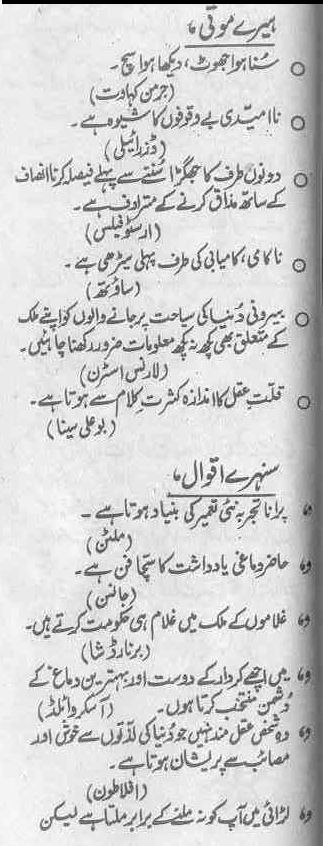 ہیرے موتی
سُنا ہوا جھوٹ، دیکھا ہوا سچ۔
(جرمن کہاوت)
نا امیدی بے وقوفوں کا شیوہ ہے۔
(ڈزرائیلی)
دونوں طرف کا جھگڑا سُننے سے پہلے فیصلہ کرنا انصاف
کے ساتھ مذاق کرنے کے مترادف ہے۔
(ارسٹوفیلس)
ناکامی، کامیابی کی طرف پہلی سیڑھی ہے۔
(ساؤتھ)
بیرونی دُنیا کی سیاحت پر جانے والوں کو اپنے ملک
کے متعلق بھی کچھ نہ کچھ معلومات ضرور رکھنا چاہئیں۔
(لارنس اسٹرن)
قلتِ عقل کا اندازہ کثرتِ کلام سے ہوتا ہے۔
(بو علی سینا)
سنہرے اقوال
پرانا تجربہ نئی تعمیر کی بنیاد ہوتا ہے۔
(ملٹن)
حاضر دماغی یادداشت کا سچا فن ہے۔
(جانسن)
غلاموں کے ملک میں غلام ہی حکومت کرتے ہیں۔
(برنارڈ شا)
میں اچھے کردار کے دوست اور بہترین دماغ کے
دُشمن منتخب کرتا ہوں۔ (آسکر وائلڈ)
وہ شخص عقل مند نہیں جو دُنیا کی لذّتوں سے خوش اور
مصائب سے پریشان ہوتا ہے۔
(افلاطون)
لڑائی میں آپ کو نہ ملنے کے برابر ملتا ہے لیکن